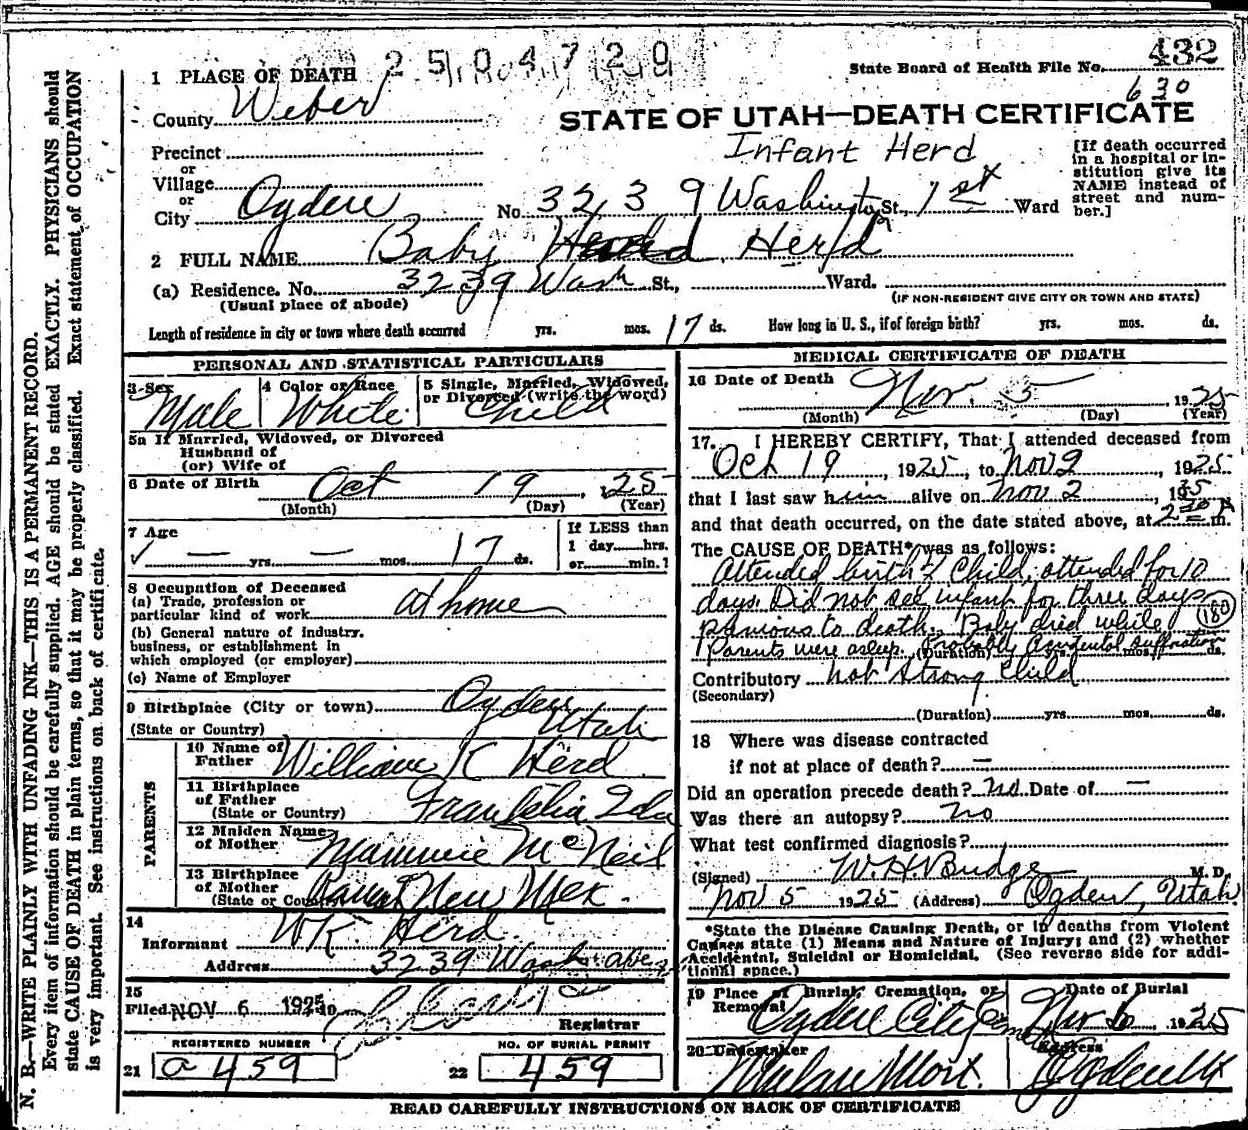 432
2504720
State Board of Health File No.
630
1 PLACE OF DEATH
County Weber
STATE OF UTAH—DEATH CERTIFICATE
Infant Herd
[If death occurred in a hospital or institution give its NAME instead of street and number.]
Precinct
or
Village
or
City Ogden No. 3239 Washington St., 1st Ward
2 FULL NAME Baby Herd
(a) Residence. No. 3239 Wash St., Ward.
(Usual place of abode) (IF NON-RESIDENT GIVE CITY OR TOWN AND STATE)
Length of residence in city or town where death occurred yrs. mos. 17 ds. How long in U. S., if of foreign birth? yrs. mos. ds.
PERSONAL AND STATISTICAL PARTICULARS
3 Sex Male
4 Color or Race White
5 Single, Married, Widowed, or Divorced (write the word) Child
5a If Married, Widowed, or Divorced
Husband of
(or) Wife of
6 Date of Birth Oct 19, 1925
(Month) (Day) (Year)
7 Age
✓ — yrs. — mos. 17 ds.
If LESS than
1 day......hrs.
or......min.?
8 Occupation of Deceased
(a) Trade, profession or
particular kind of work at home
(b) General nature of industry,
business, or establishment in
which employed (or employer)
(c) Name of Employer
9 Birthplace (City or town) Ogden
(State or Country) Utah
PARENTS
10 Name of Father William K Herd
11 Birthplace of Father
(State or Country) Franklin Ida
12 Maiden Name of Mother Mammie McNeil
13 Birthplace of Mother
(State or Country) New Mex.
14
Informant W K. Herd
Address 3239 Wash ave
15
Filed NOV 6 1925
Registrar
REGISTERED NUMBER
21 a 459
NO. OF BURIAL PERMIT
22 459
MEDICAL CERTIFICATE OF DEATH
16 Date of Death Nov. 5 1925
(Month) (Day) (Year)
17. I HEREBY CERTIFY, That I attended deceased from
Oct 19, 1925, to Nov 2, 1925
that I last saw him alive on Nov 2, 1925
and that death occurred, on the date stated above, at 2 30 A m.
The CAUSE OF DEATH* was as follows:
Attended birth of Child, attended for 10
days. Did not see infant for three days
previous to death. Baby died while 180
Parents were asleep. Probably Accidental Suffocation
(Duration) yrs. mos. ds.
Contributory not strong Child
(Secondary)
(Duration) yrs. mos. ds.
18 Where was disease contracted
if not at place of death? —
Did an operation precede death? no Date of —
Was there an autopsy? no
What test confirmed diagnosis?
(Signed) W. H. Budge M. D.
Nov 5 1925 (Address) Ogden, Utah
*State the Disease Causing Death, or in deaths from Violent
Causes state (1) Means and Nature of Injury; and (2) whether
Accidental, Suicidal or Homicidal. (See reverse side for additional space.)
19 Place of Burial, Cremation, or Removal Ogden City Cem
Date of Burial Nov 6 1925
20 Undertaker
Address
Ogden Ut
READ CAREFULLY INSTRUCTIONS ON BACK OF CERTIFICATE
N. B.—WRITE PLAINLY WITH UNFADING INK—THIS IS A PERMANENT RECORD.
Every item of information should be carefully supplied. AGE should be stated EXACTLY. PHYSICIANS should
state CAUSE OF DEATH in plain terms, so that it may be properly classified. Exact statement of OCCUPATION
is very important. See instructions on back of certificate.